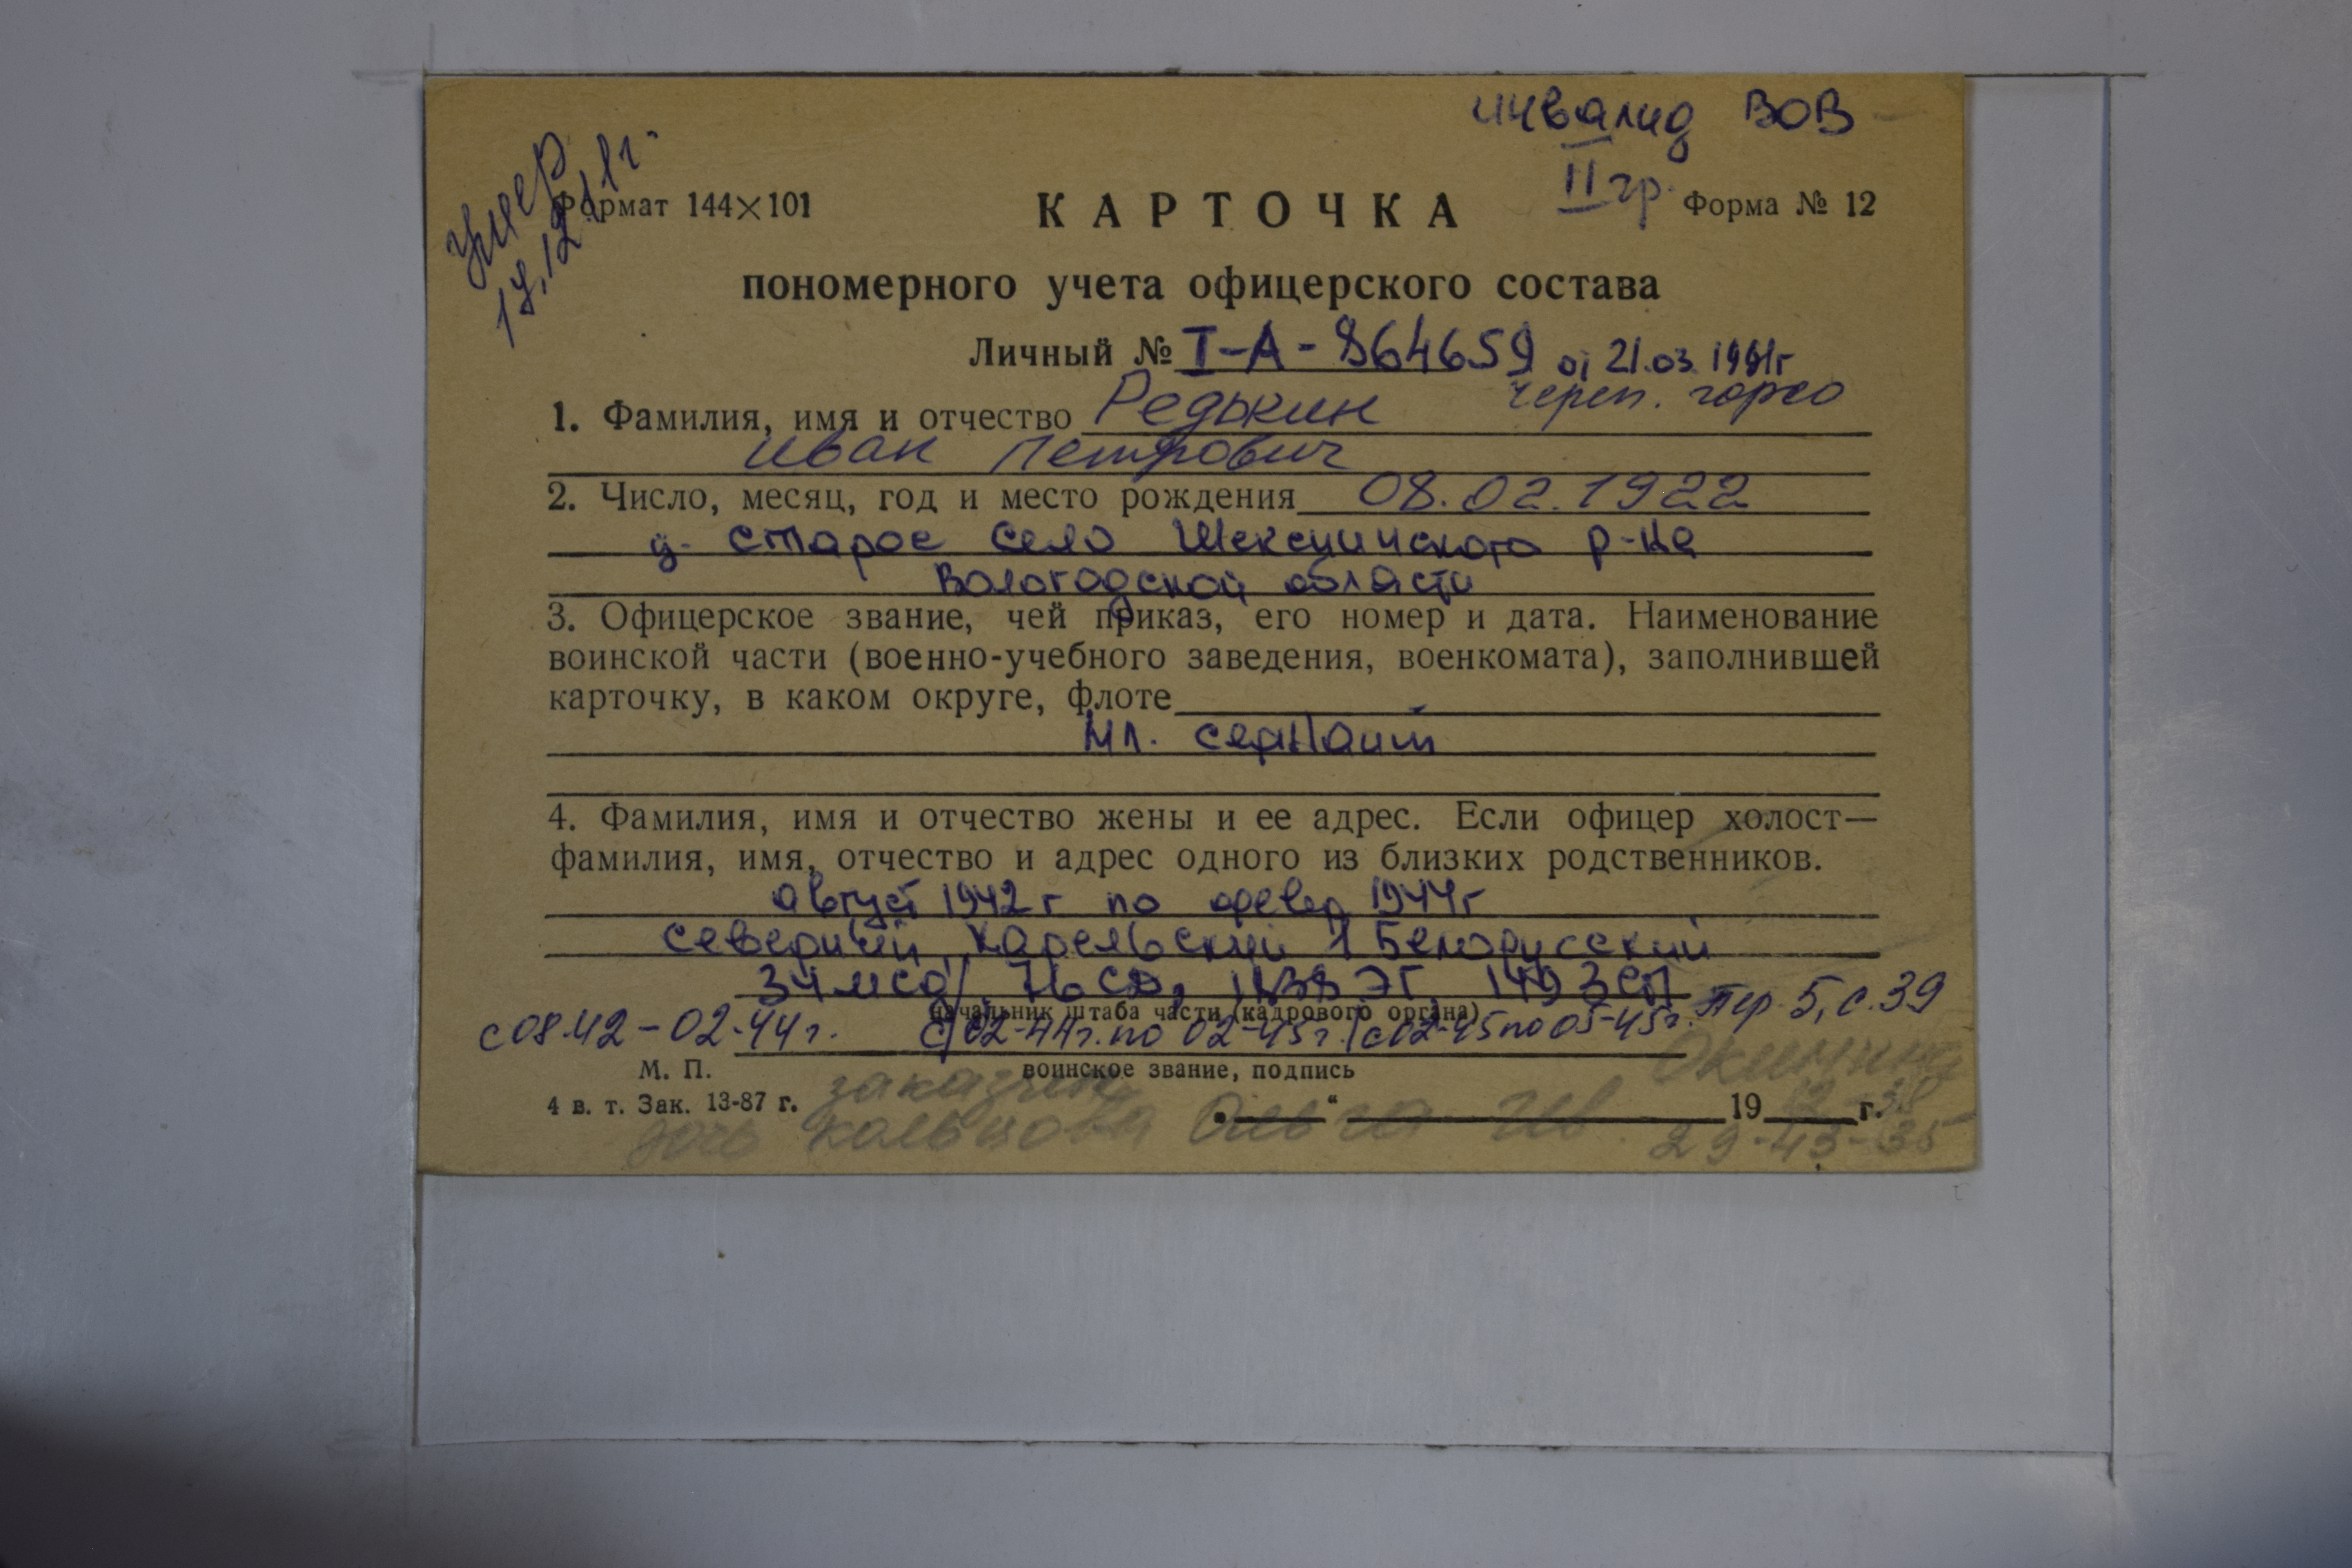 инвалид ВОВ
II гр.
умер
Формат 144×101
КАРТОЧКА
Форма № 12
пономерного учета офицерского состава
Личный № I-А-864659 от 21.03.1981г
череп. горсо
1. Фамилия, имя и отчество Редькин
Иван Петрович
2. Число, месяц, год и место рождения 08.02.1922
д. Старое Село Шекснинского р-на
Вологодской области
3. Офицерское звание, чей приказ, его номер и дата. Наименование
воинской части (военно-учебного заведения, военкомата), заполнившей
карточку, в каком округе, флоте
Мл. сержант
4. Фамилия, имя и отчество жены и ее адрес. Если офицер холост—
фамилия, имя, отчество и адрес одного из близких родственников.
август 1942 г по февр 1944г
Северный, Карельский 1 Белорусский
76 СД, ЭГ,
Пер. 5, с. 39
начальник штаба части (кадрового органа)
с 08.42 - 02.44 г. с 02-44г. по 02-45г. с 02-45 по 05-45г.
М. П.
воинское звание, подпись
4 в. т. Зак. 13-87 г.
„ “ 19 г.
дочь Кольцова Ольга Ив. 29-43-35